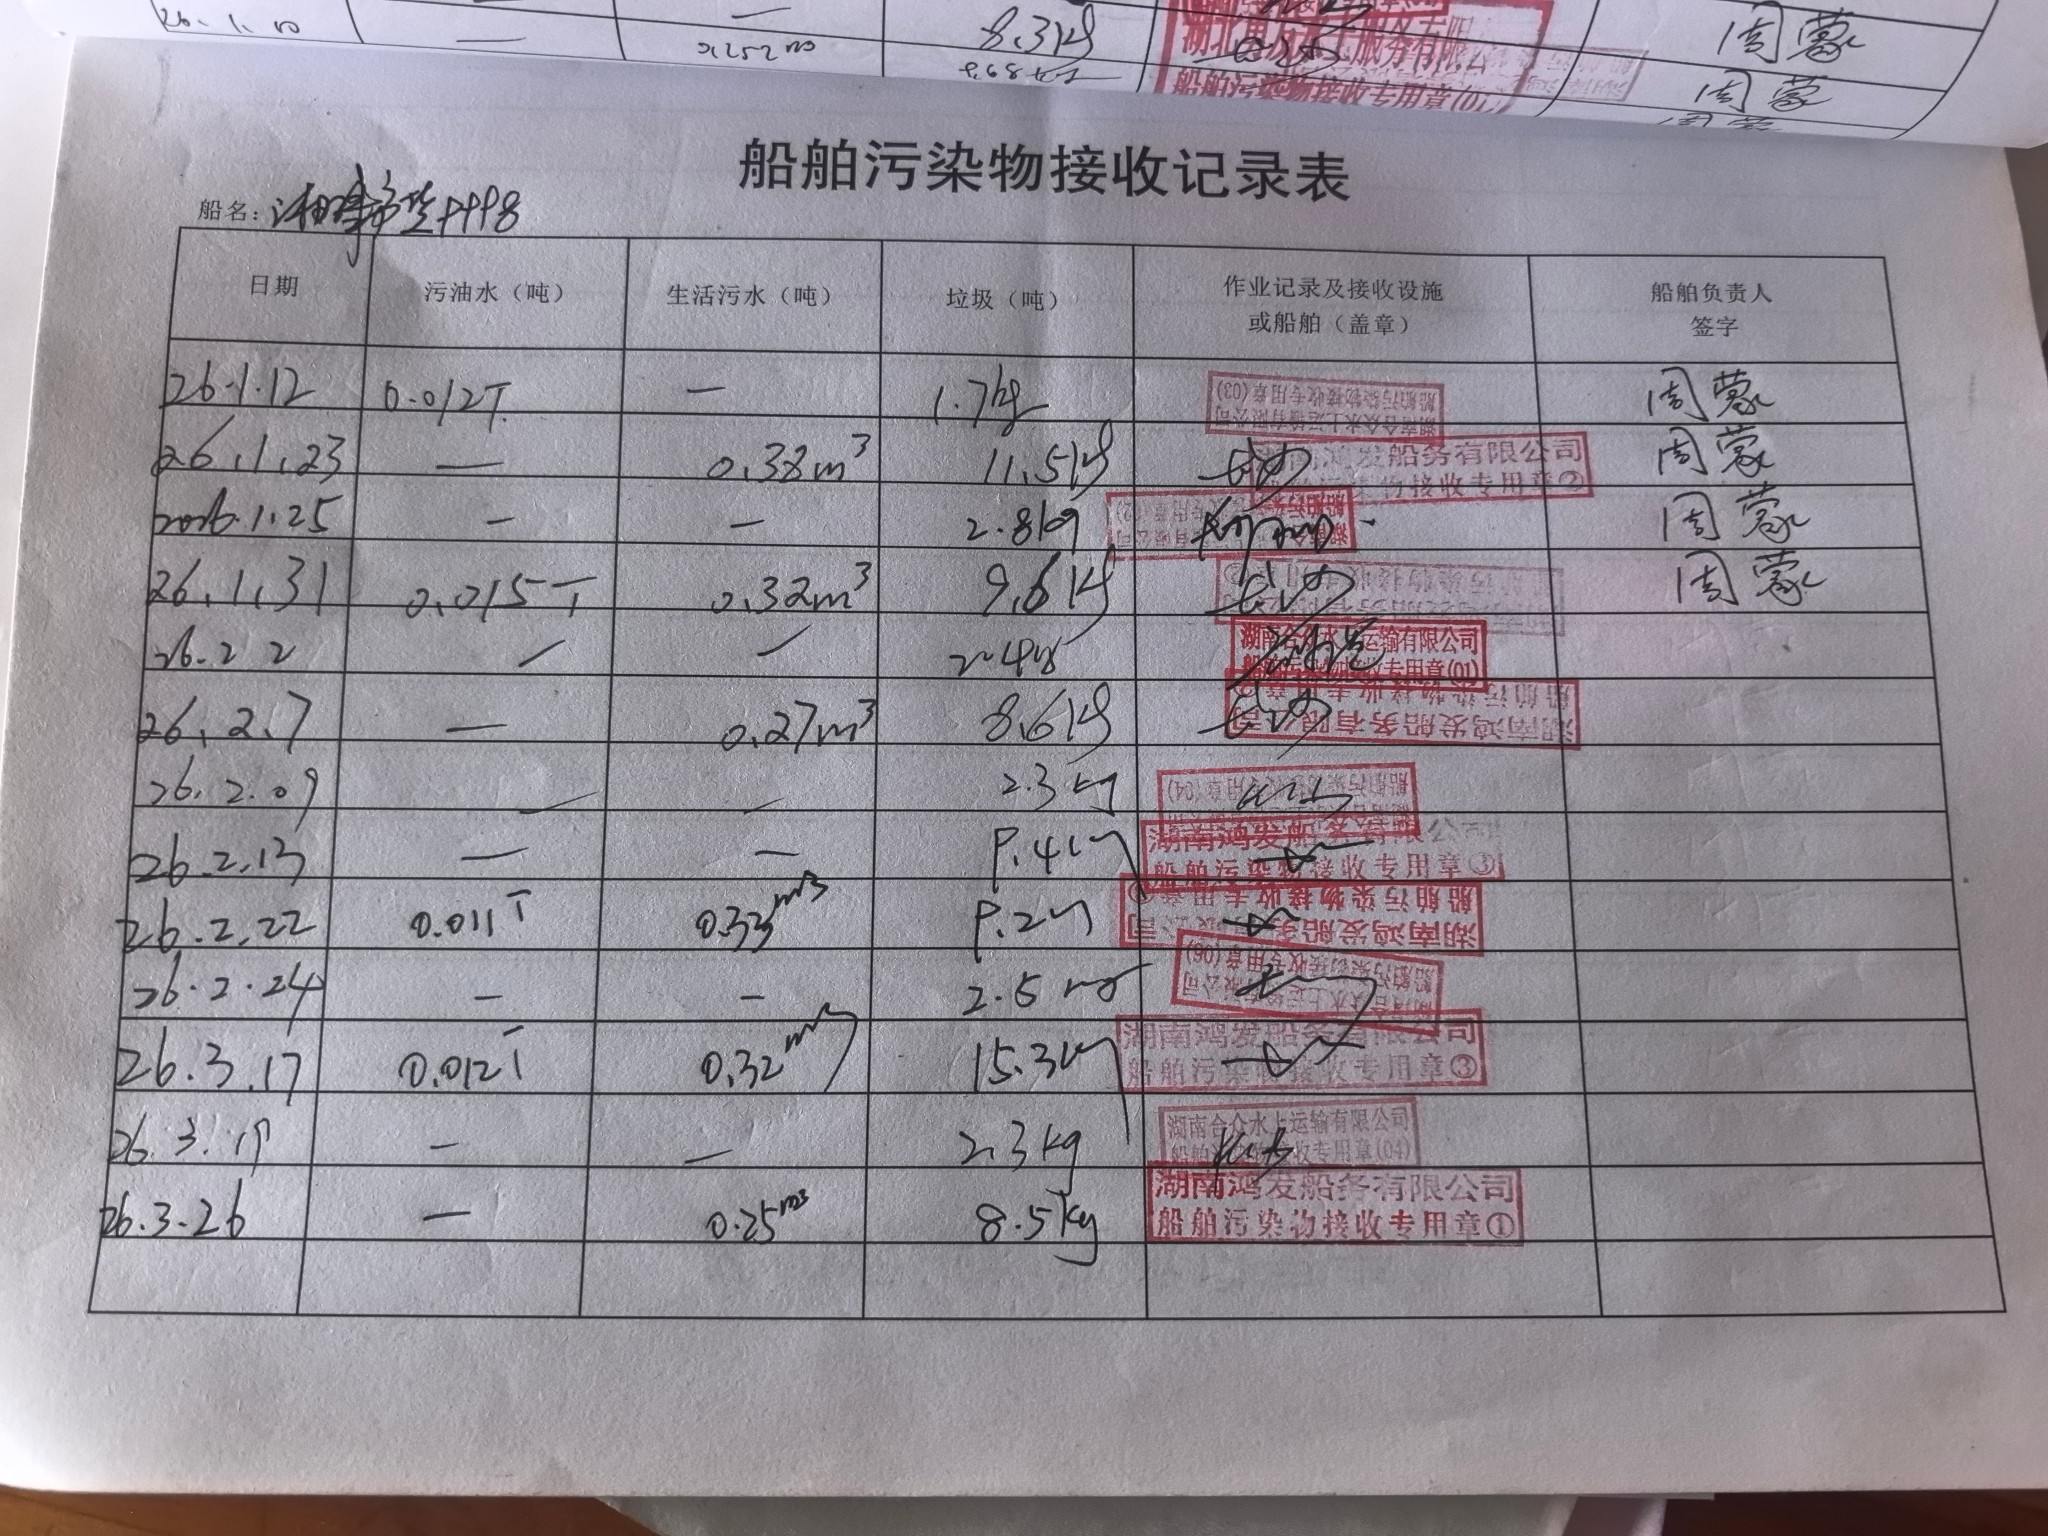 8.3kg
周蒙
周蒙
船舶污染物接收专用章(01)
船舶污染物接收记录表
船名：
日期 污油水（吨） 生活污水（吨） 垃圾（吨） 作业记录及接收设施 船舶负责人
或船舶（盖章） 签字
26.1.12 0.012T — 1.7kg 周蒙
湖南合众水上运输有限公司
船舶污染物接收专用章(03)
26.1.23 — 0.38m³ 11.5kg 长沙 周蒙
鸿发船务有限公司
污染物接收专用章②
2026.1.25 — — 2.8kg 周蒙
26.1.31 0.015T 0.32m³ 9.6kg 长沙 周蒙
26.2.2 — — 2.4kg
湖南合众水上运输有限公司
船舶污染物接收专用章(01)
26.2.7 — 0.27m³ 8.6kg 长沙
湖南鸿发船务有限公司
船舶污染物接收专用章②
26.2.09 — — 2.3kg
船舶污染物接收专用章(04)
26.2.13 — —
湖南鸿发船务有限公司
船舶污染物接收专用章③
26.2.22 0.011T 0.33m³
湖南鸿发船务有限公司
船舶污染物接收专用章
26.2.24 — — 2.5kg
船舶污染物接收专用章(06)
26.3.17 0.012T 0.32m³ 15.3kg
湖南鸿发船务有限公司
船舶污染物接收专用章③
26.3.19 — — 2.3kg 长沙
湖南合众水上运输有限公司
船舶污染物接收专用章(04)
26.3.26 — 0.25m³ 8.5kg
湖南鸿发船务有限公司
船舶污染物接收专用章①